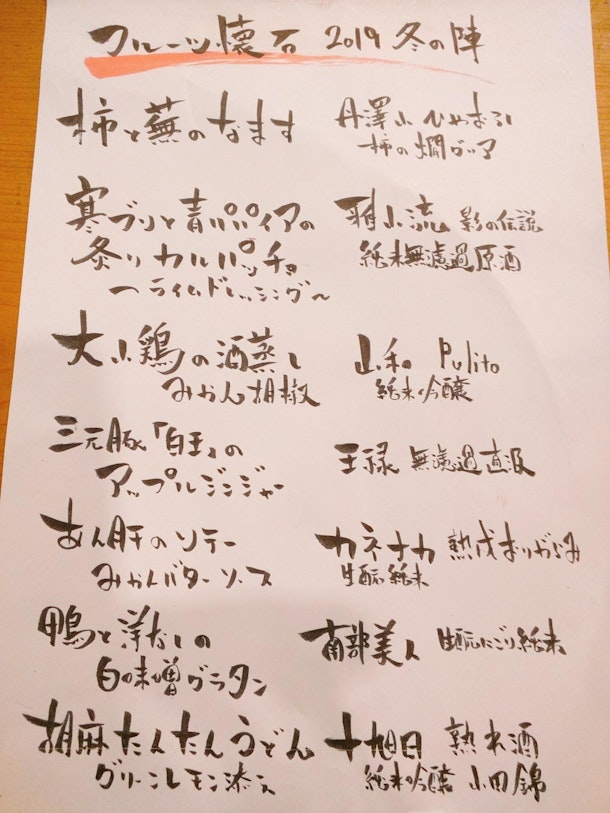 フルーツ懐石 2019 冬の陣
柿と蕪のなます
丹澤山 ひやおろし
柿の燗グッア
寒ブリと青パパイアの
炙りカルパッチョ
〜ライムドレッシング〜
雅山流 影の伝説
純米無濾過原酒
大山鶏の酒蒸し
みかん胡椒
山和 Pulito
純米吟醸
三元豚「白王」の
アップルジンジャー
王禄 無濾過直汲
あん肝のソテー
みかんバターソース
カネナカ 熟成おりがらみ
生酛純米
鴨と洋なしの
白味噌グラタン
南部美人 生酛にごり純米
胡麻たんたんうどん
グリーンレモン添え
十旭日 熟れ酒
純米吟醸 山田錦